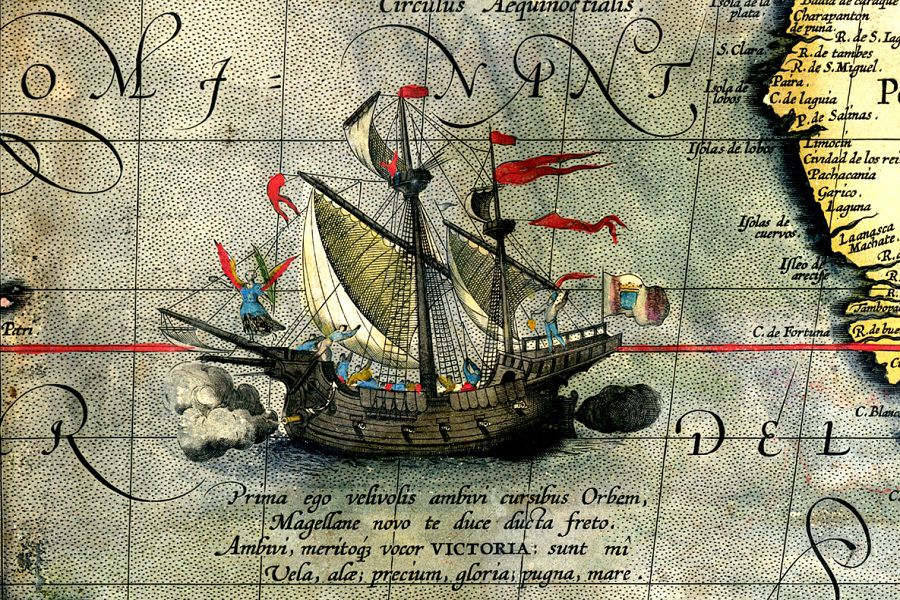 Circulus Aequinoctialis.
OMI=
NPNT
Isola de la
plata
Charapanton
de puna.
R. de S. Iag
S. Clara
R. de tambes
R. de S. Miguel.
Isola de
lobos
Paira.
C. de laguia
P. de Salinas.
Isolas de lobos
Limocin
Cividad de los rei
Pachacania
Garico.
Laguna
Isolas de
cuervos
Laanasca
Machate.
Isleo de
arecife
Petri
C. de Fortuna
R. de bue
C. Blanc
R
DEL
Prima ego velivolis ambivi cursibus Orbem,
Magellane novo te duce ducta freto.
Ambivi, meritoqȝ vocor VICTORIA: sunt mî
Vela, alæ; precium, gloria; pugna, mare.